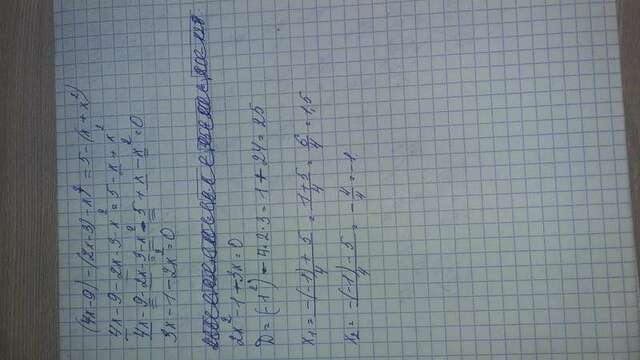 (4x-9)-(2x-3)-x² = 5-(x+x²)
4x-9-2x-3-x² = 5-x+x²
4x-9-2x-3-x²-5+x-x²=0
3x-1-2x²=0
2x²-1+3x=0
D=(-1²)-4·2·3=1+24=25
x₁= -(-1)+5/4 = 1+5/4 = 6/4 = 1,5
x₂= -(-1)-5/4 = -4/4 = -1